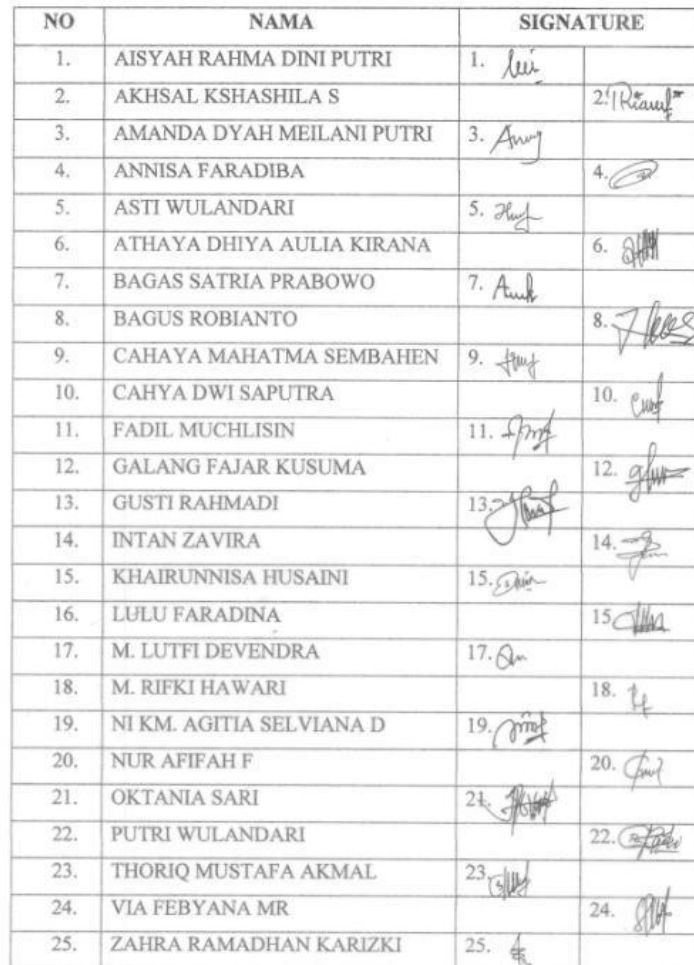 NO NAMA SIGNATURE
1. AISYAH RAHMA DINI PUTRI 1.
2. AKHSAL KSHASHILA S 2.
3. AMANDA DYAH MEILANI PUTRI 3.
4. ANNISA FARADIBA 4.
5. ASTI WULANDARI 5.
6. ATHAYA DHIYA AULIA KIRANA 6.
7. BAGAS SATRIA PRABOWO 7.
8. BAGUS ROBIANTO 8.
9. CAHAYA MAHATMA SEMBAHEN 9.
10. CAHYA DWI SAPUTRA 10.
11. FADIL MUCHLISIN 11.
12. GALANG FAJAR KUSUMA 12.
13. GUSTI RAHMADI 13.
14. INTAN ZAVIRA 14.
15. KHAIRUNNISA HUSAINI 15.
16. LULU FARADINA 15
17. M. LUTFI DEVENDRA 17.
18. M. RIFKI HAWARI 18.
19. NI KM. AGITIA SELVIANA D 19.
20. NUR AFIFAH F 20.
21. OKTANIA SARI 21.
22. PUTRI WULANDARI 22.
23. THORIQ MUSTAFA AKMAL 23.
24. VIA FEBYANA MR 24.
25. ZAHRA RAMADHAN KARIZKI 25.